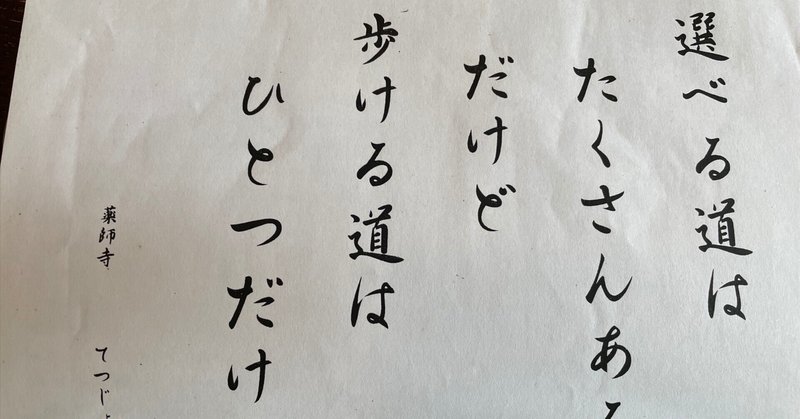 選べる道は
たくさんある
だけど
歩ける道は
ひとつだけ
薬師寺 てつじ